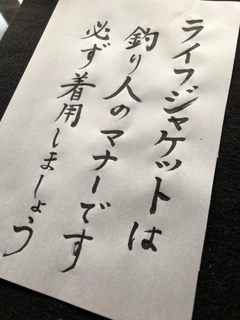 ライフジャケットは
釣り人のマナーです
必ず着用しましょう